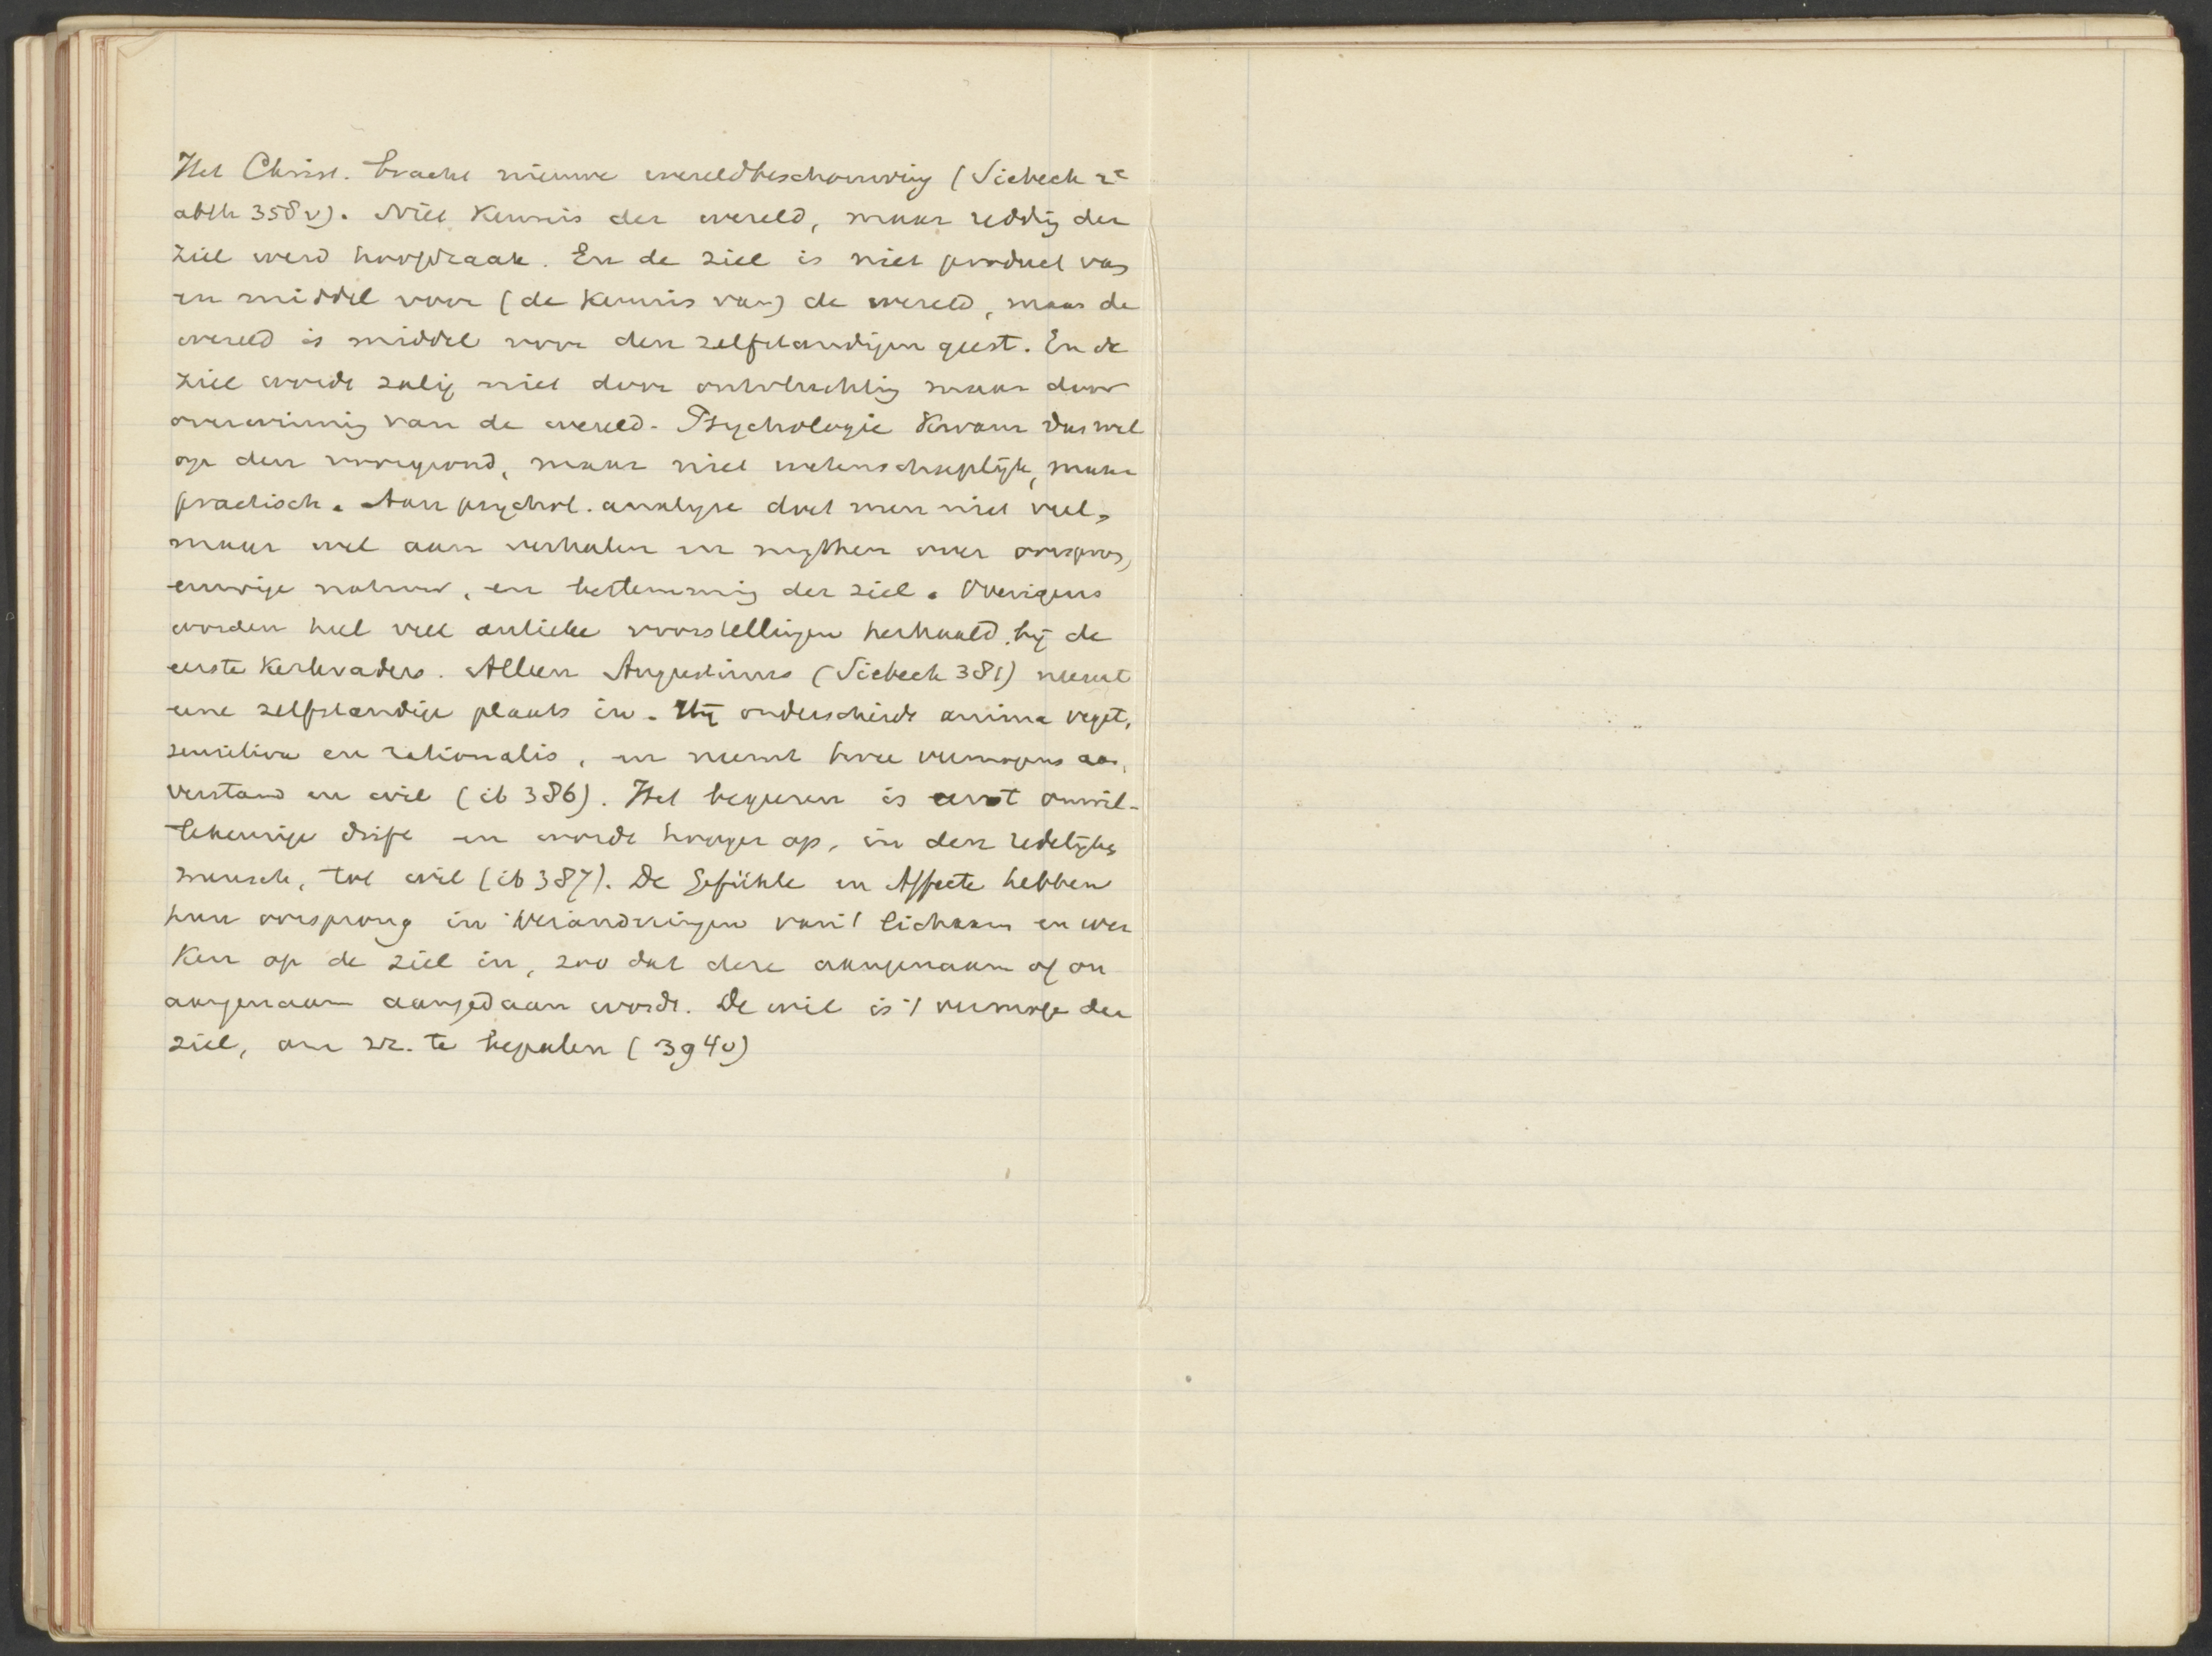 Het Christ. bracht nieuwe wereldbeschouwing (Siebeck 2e
abth 358v). Niet kennis der wereld, maar redding der
ziel werd hoofdzaak. En de ziel is niet product van
en middel voor (de kennis van) de wereld, maar de
wereld is middel voor den zelfstandigen geest. En de
ziel wordt zalig niet door ontvluchting maar door
overwinning van de wereld. Psychologie kwam dus wel
op den voorgrond, maar niet wetenschappelijk, maar
practisch. Aan psychol. analyse doet men niet veel,
maar wel aan verhalen en mythen over oorsprong,
eeuwige natuur, en bestemming der ziel. Overigens
worden heel veel antieke voorstellingen herhaald bij de
eerste kerkvaders. Alleen Augustinus (Siebeck 381) neemt
eene zelfstandige plaats in. Hij onderscheidt anima veget,
sensitiva en rationalis, en neemt twee vermogens aan,
verstand en wil (ib 386). Het begeren is eerst onwil-
lekeurige drift en wordt hooger op, in den redelijken
mensch, tot wil (ib 387). De Gefühle en Affecte hebben
hun oorsprong in veranderingen van 't lichaam en wer
ken op de ziel in, zoo dat deze aangenaam of on
aangenaam aangedaan wordt. De wil is 't vermogen der
ziel, om zz. te bepalen (394v)